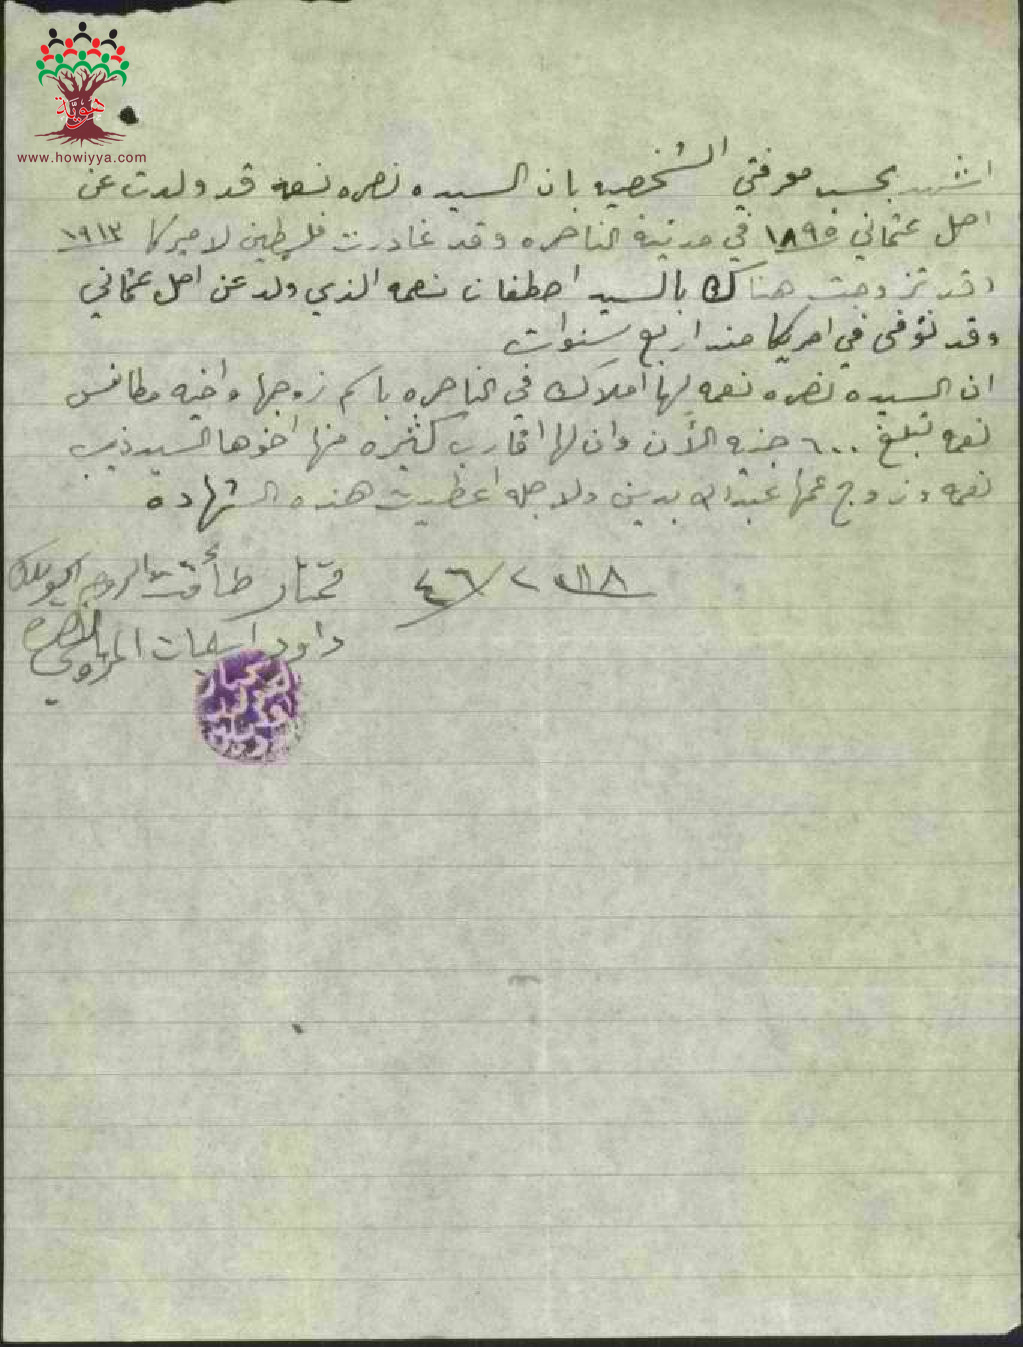 هوية
www.howiyya.com
اشهد بحسب معرفتي الشخصيه بان السيده نصره نعمه قد ولدت عن
اصل عثماني في ١٨٩٥ في مدينة الناصره وقد غادرت فلسطين لاميركا ١٩١٣
وقد تزوجت هناك بالسيد اصطفان نعمه الذي ولد عن اصل عثماني
وقد توفى في امريكا منذ اربع سنوات
ان السيده نصره نعمه لها املاك في الناصره باسم زوجها واخيه مطانس
نعمه تبلغ ٦٠٠٠ جنيه الأن وان لها اقارب كثيره منها اخوها السيد ذيب
نعمه وزوج عمها عبدالله بدين ولاجله اعطيت هذه الشهاده
مختار طائفة الروم
داود